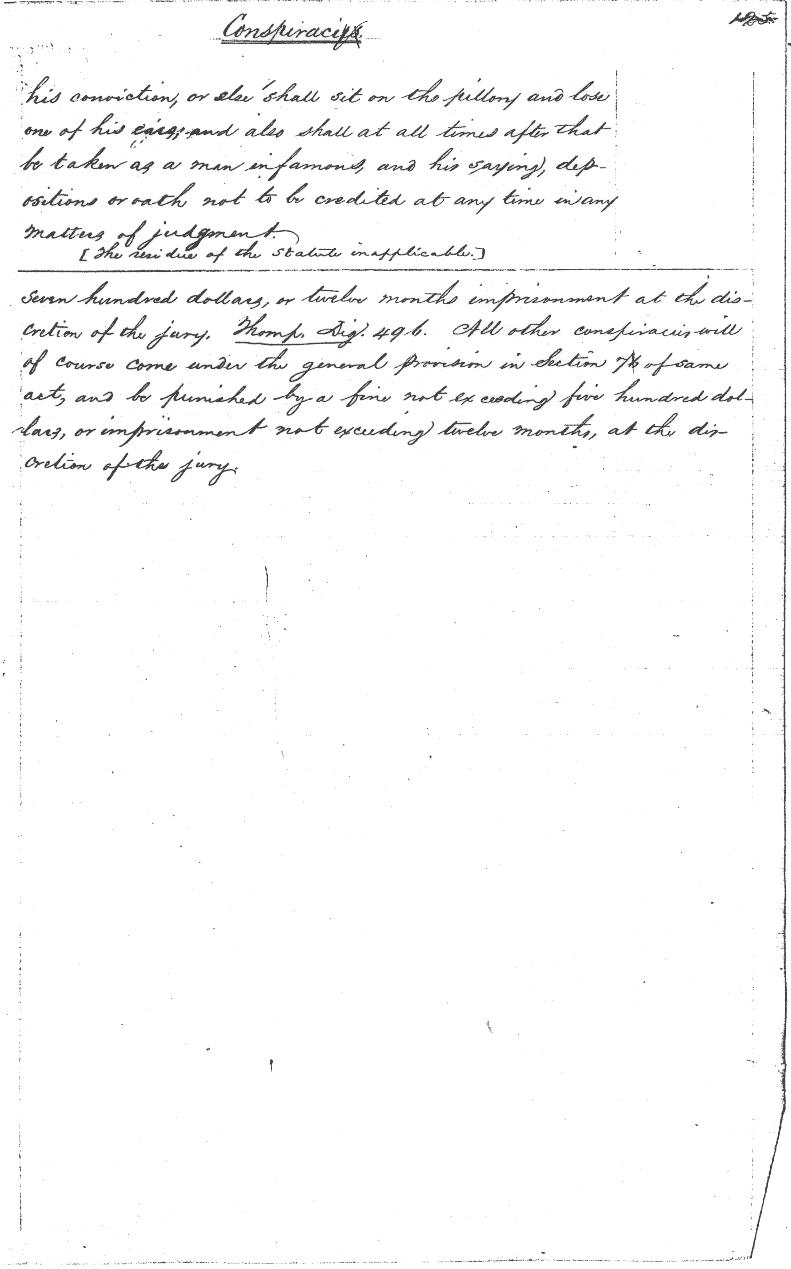 Conspiracies.
his conviction, or else shall sit on the pillory and lose
one of his ears, and also shall at all times after that
be taken as a man infamous, and his saying, dep-
ositions or oath not to be credited at any time in any
matters of judgment.
[The residue of the statute inapplicable.]
seven hundred dollars, or twelve months imprisonment at the dis-
cretion of the jury. Thomp. Dig. 496. All other conspiracies will
of course come under the general provision in Section of same
act, and be punished by a fine not exceeding five hundred dol-
lars, or imprisonment not exceeding twelve months, at the dis-
cretion of the jury.